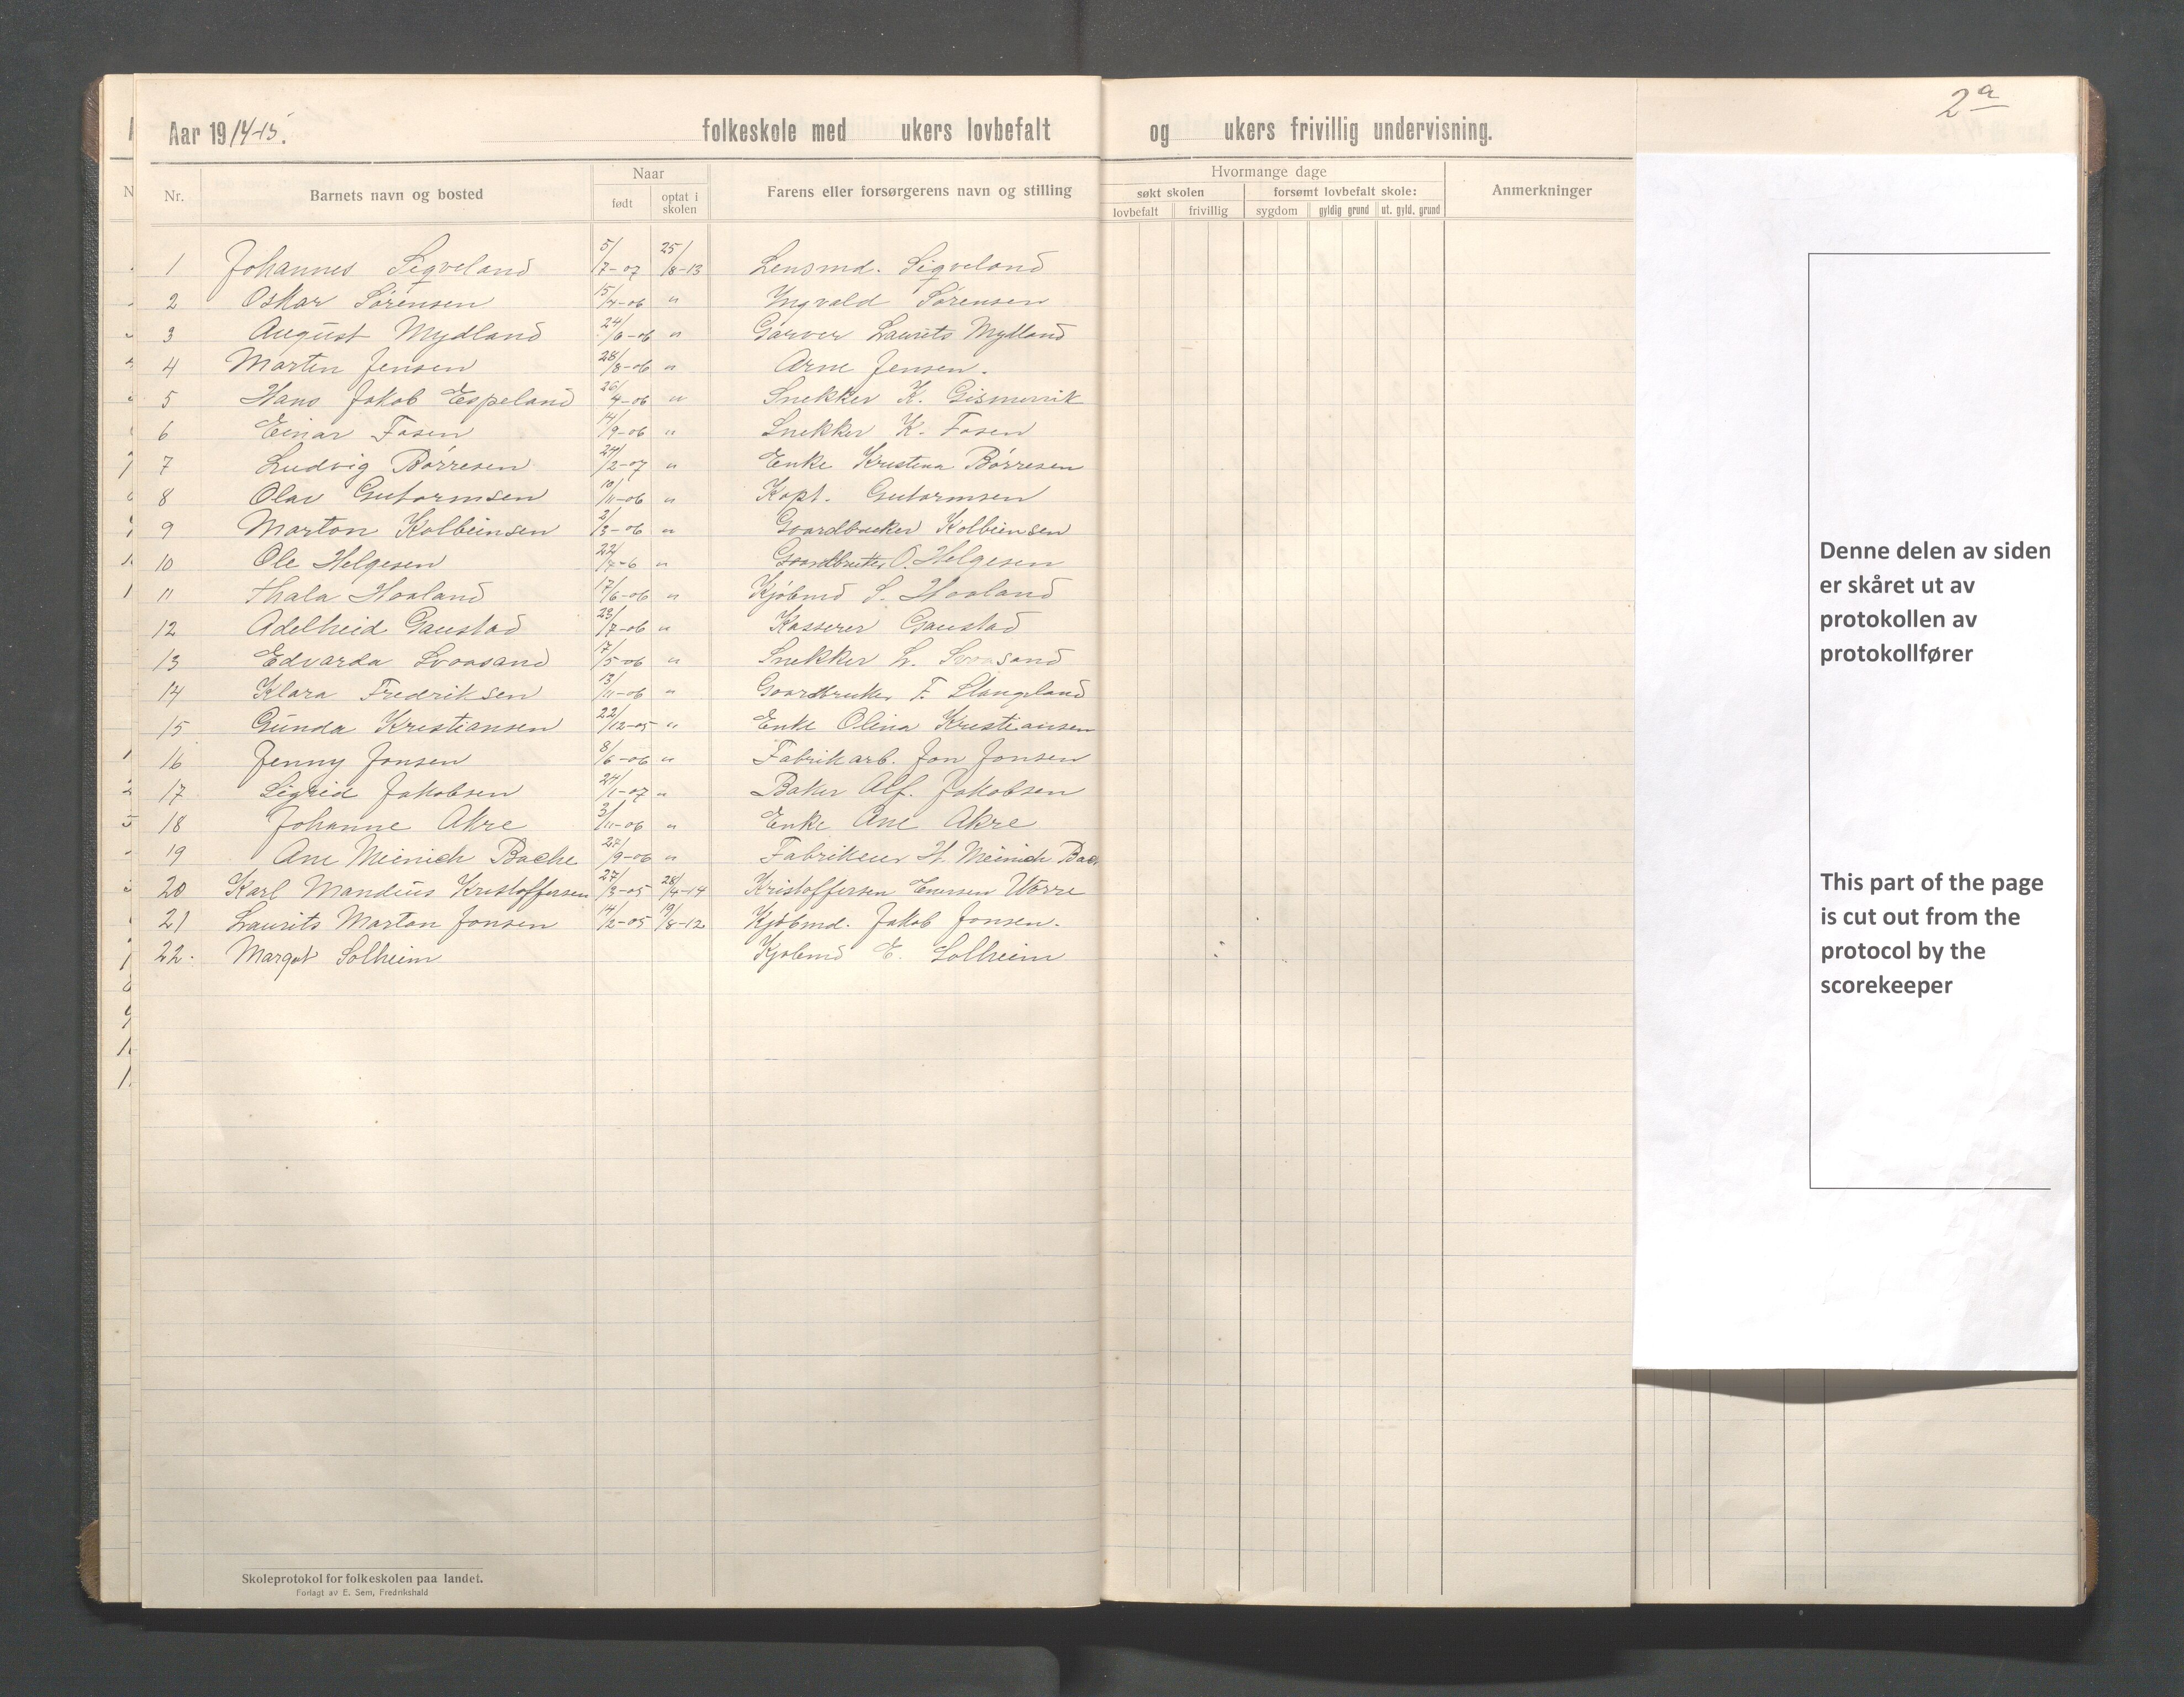 2 a
Aar 1914-15. folkeskole med ukers lovbefalt og ukers frivillig undervisning.
Nr. Barnets navn og bosted Naar født optat i skolen Farens eller forsørgerens navn og stilling Hvormange dage søkt skolen lovbefalt frivillig forsømt lovbefalt skole: sygdom gyldig grund ut. gyld. grund Anmerkninger
1 Johannes Sigveland 5/7-07 25/8-13 Lensmd. Sigveland
2 Oskar Sørensen 15/4-06 " Yngvald Sørensen
3 August Mydland 24/6-06 " Garver Laurits Mydland
4 Martin Jensen 28/8-06 " Arne Jensen.
5 Hans Jakob Espeland 26/4-06 " Snekker K. Gismervik
6 Einar Fosen 14/9-06 " Snekker K. Fosen
7 Ludvig Børresen 24/2-07 " Enke Kristina Børresen
8 Olav Gutormsen 10/11-06 " Kapt. Gutormsen
9 Marton Kolbeinsen 2/3-06 " Gaardbruker Kolbeinsen
10 Ole Helgesen 22/4-6 " Gaardbruker O. Helgesen
11 Thala Haaland 17/6-06 " Kjøbmd S. Haaland
12 Adelheid Gaustad 23/7-06 " Kasserer Gaustad
13 Edvarda Svaasand 17/5-06 " Snekker L. Svaasand
14 Klara Fredriksen 13/11-06 " Gaardbruker F. Stangeland
15 Gunda Kristiansen 22/12-05 " Enke Olina Kristiansen
16 Jenny Jonsen 8/6-06 " Fabrikarb. Jon Jonsen
17 Sigrid Jakobsen 24/1-07 " Baker Alf. Jakobsen
18 Johanne Akre 3/11-06 " Enke Ane Akre
19 Ane Meinich Bache 27/9-06 " Fabrikeier H. Meinich Bach
20 Karl Mandius Kristoffersen 27/3-05 28/4-14 Kristoffersen Enersen Vorre
21 Laurits Marton Jonsen 14/2-05 19/8-12 Kjøbmd. Jakob Jonsen.
22. Margot Solheim Kjøbmd E. Solheim
Skoleprotokol for folkeskolen paa landet.
Forlagt av E. Sem, Fredrikshald
Denne delen av siden
er skåret ut av
protokollen av
protokollfører
This part of the page
is cut out from the
protocol by the
scorekeeper